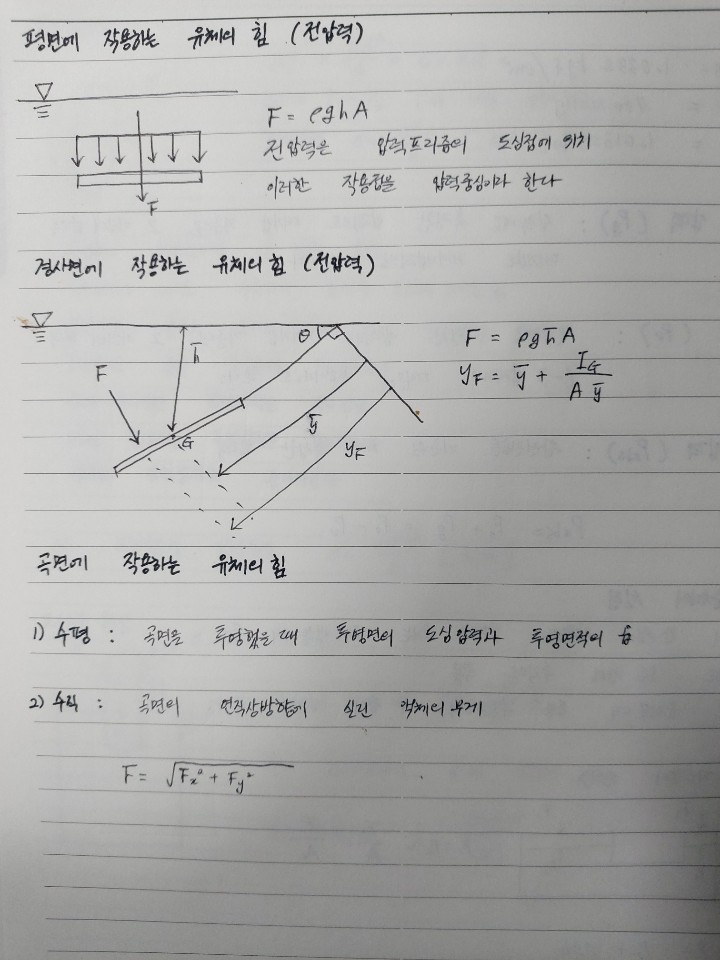 평면에 작용하는 유체의 힘 (전압력)
F = ρghA
전압력은 압력프리즘의 도심점에 위치
이러한 작용점을 압력중심이라 한다
F
경사면에 작용하는 유체의 힘 (전압력)
θ
h̅
F = ρgh̅A
F
y_F = y̅ + I_G / A y̅
G
y̅
y_F
곡면에 작용하는 유체의 힘
1) 수평 : 곡면을 투영했을 때 투영면의 도심압력과 투영면적의 곱
2) 수직 : 곡면의 연직상방향에 실린 액체의 무게
F = √Fx² + Fy²